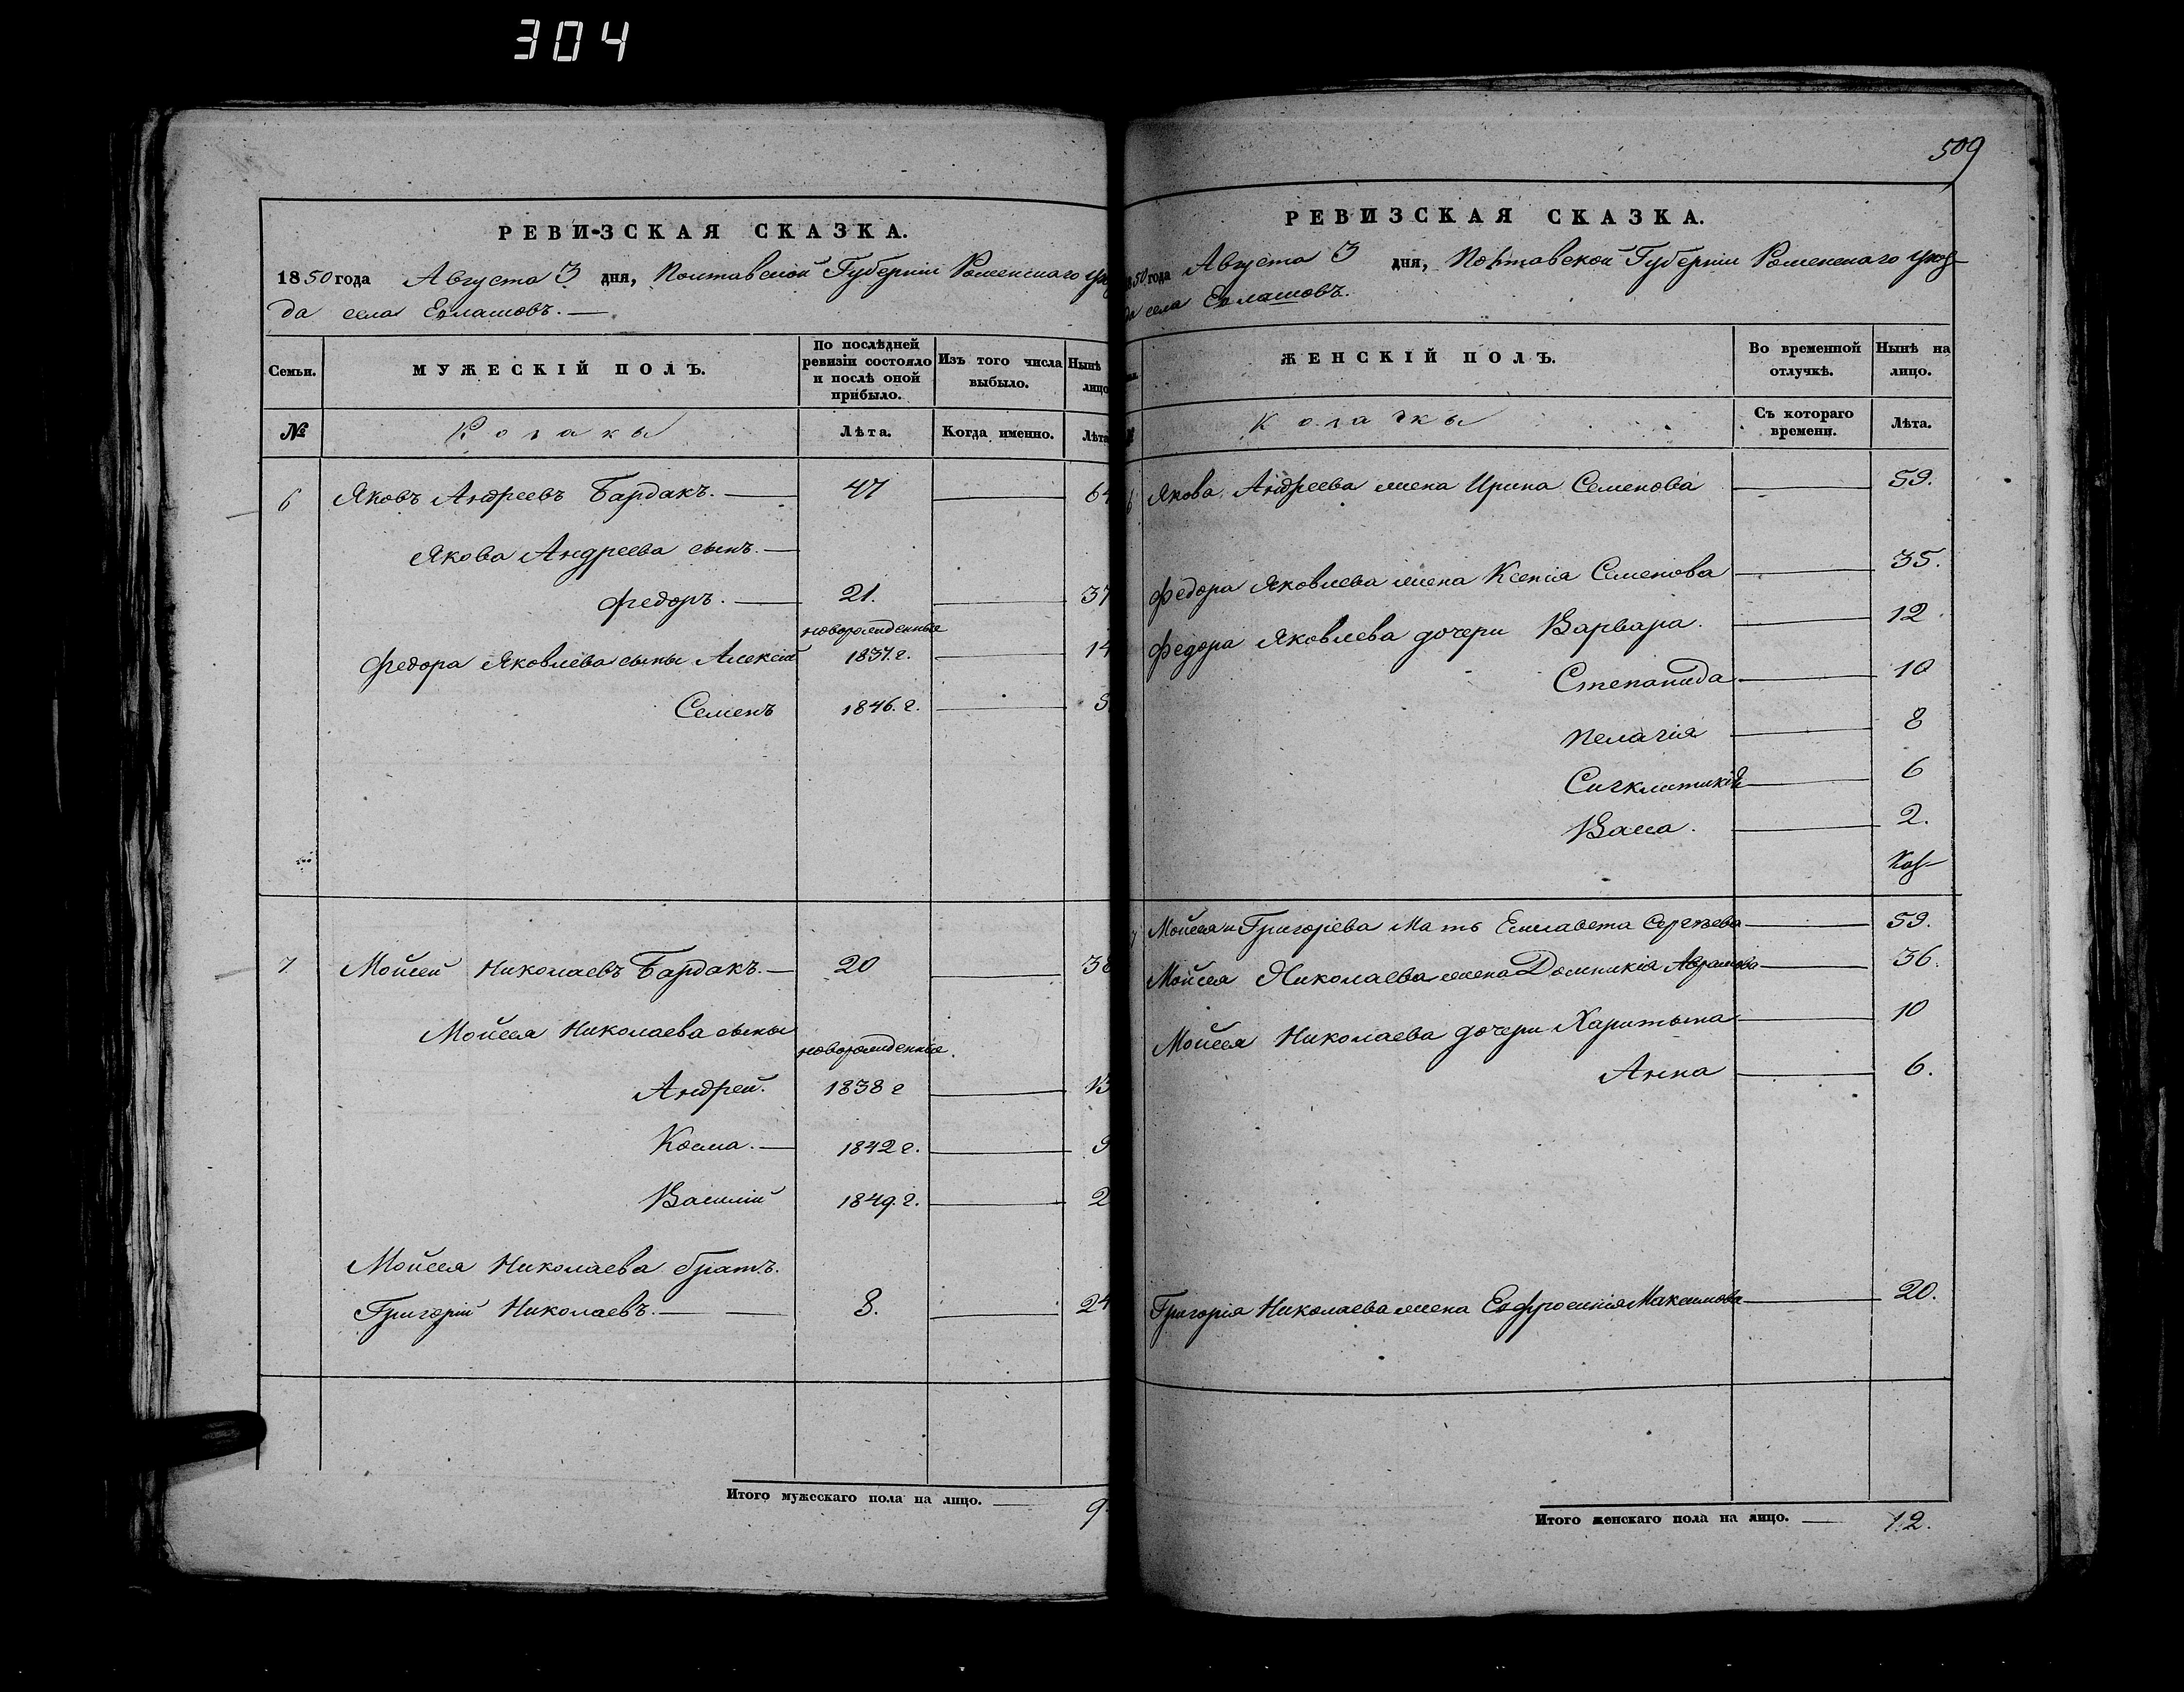 304
РЕВИЗСКАЯ СКАЗКА.
1850 года Августа 3 дня, Полтавской Губернии Роменскаго уез
да села Евлашовъ.
Семьи.
МУЖЕСКІЙ ПОЛЪ.
По послѣдней ревизіи состояло и послѣ оной прибыло.
Изъ того числа выбыло.
Нынѣ лицо
№
Козаки
Лѣта.
Когда именно.
Лѣта
6 Яковъ Андреевъ Бардакъ. 47 64
Якова Андреева сынъ.
Федоръ. 21. 37
новорожденные
Федора Яковлева сыны Алексей 1837. г. 14
Семенъ 1846. г. 5
7 Мойсей Николаевъ Бардакъ. 20 38
Мойсея Николаева сыны
новорожденные.
Андрей. 1838 г 13
Косма. 1842 г. 9
Василій 1849. г. 2
Мойсея Николаева братъ.
Григорій Николаевъ. 8. 24
Итого мужескаго пола на лицо. 9
509
РЕВИЗСКАЯ СКАЗКА.
1850 года Августа 3 дня, Полтавской Губерніи Роменскаго уез
да села Евлашовъ.
ЖЕНСКІЙ ПОЛЪ.
Во временной отлучкѣ.
Нынѣ на лицо.
Козачки
Съ котораго времени.
Лѣта.
6 Якова Андреева жена Ирина Семенова 59.
Федора Яковлева жена Ксенія Семенова 35.
Федора Яковлева дочери Варвара. 12
Степанида 10
Пелагія 8
Сигклитикія 6
Васса. 2.
7 Мойсея и Григорієва Мать Елисавета Сергѣева 59.
Мойсея Николаева жена Домникія Аврамова 36.
Мойсея Николаева дочери Харитына 10
Анна 6.
Григорія Николаева жена Евфросинія Максимова 20.
Итого женскаго пола на лицо. 12.